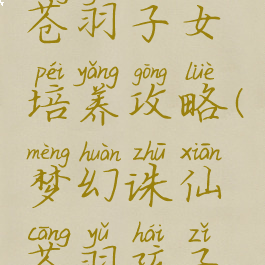 苍羽子女
péi yǎng gōng lüè
培养攻略(
mèng huàn zhū xiān
梦幻诛仙
cāng yǔ hái zǐ
苍羽孩子